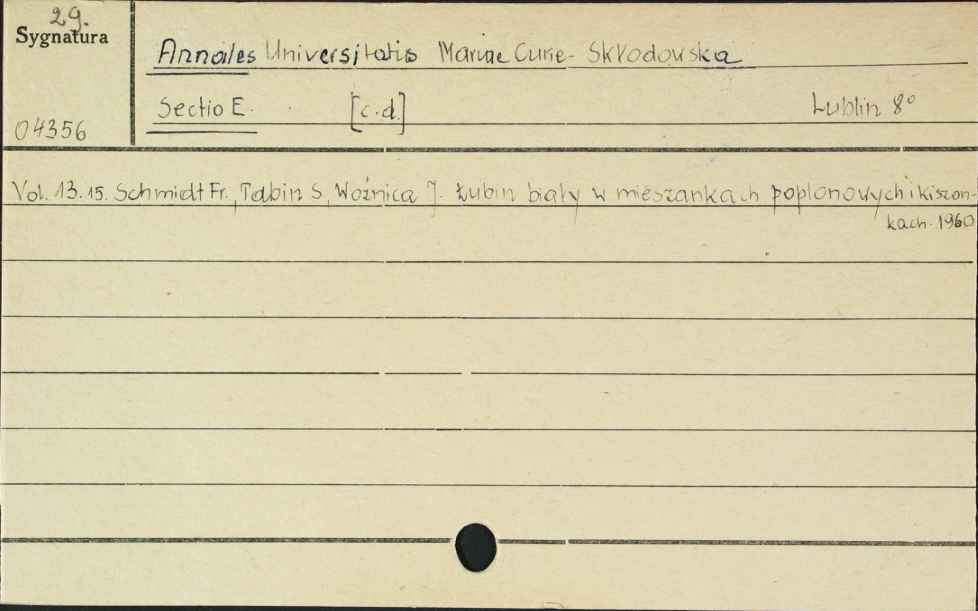 29.
Sygnatura
Annales Universitatis Mariae Curie-Skłodowska
Sectio E. [c.d.] Lublin 8°
04356
Vol. 13.15. Schmidt Fr., Tabin S, Woźnica J. Łubin biały w mieszankach poplonowych i kiszon-
kach. 1960